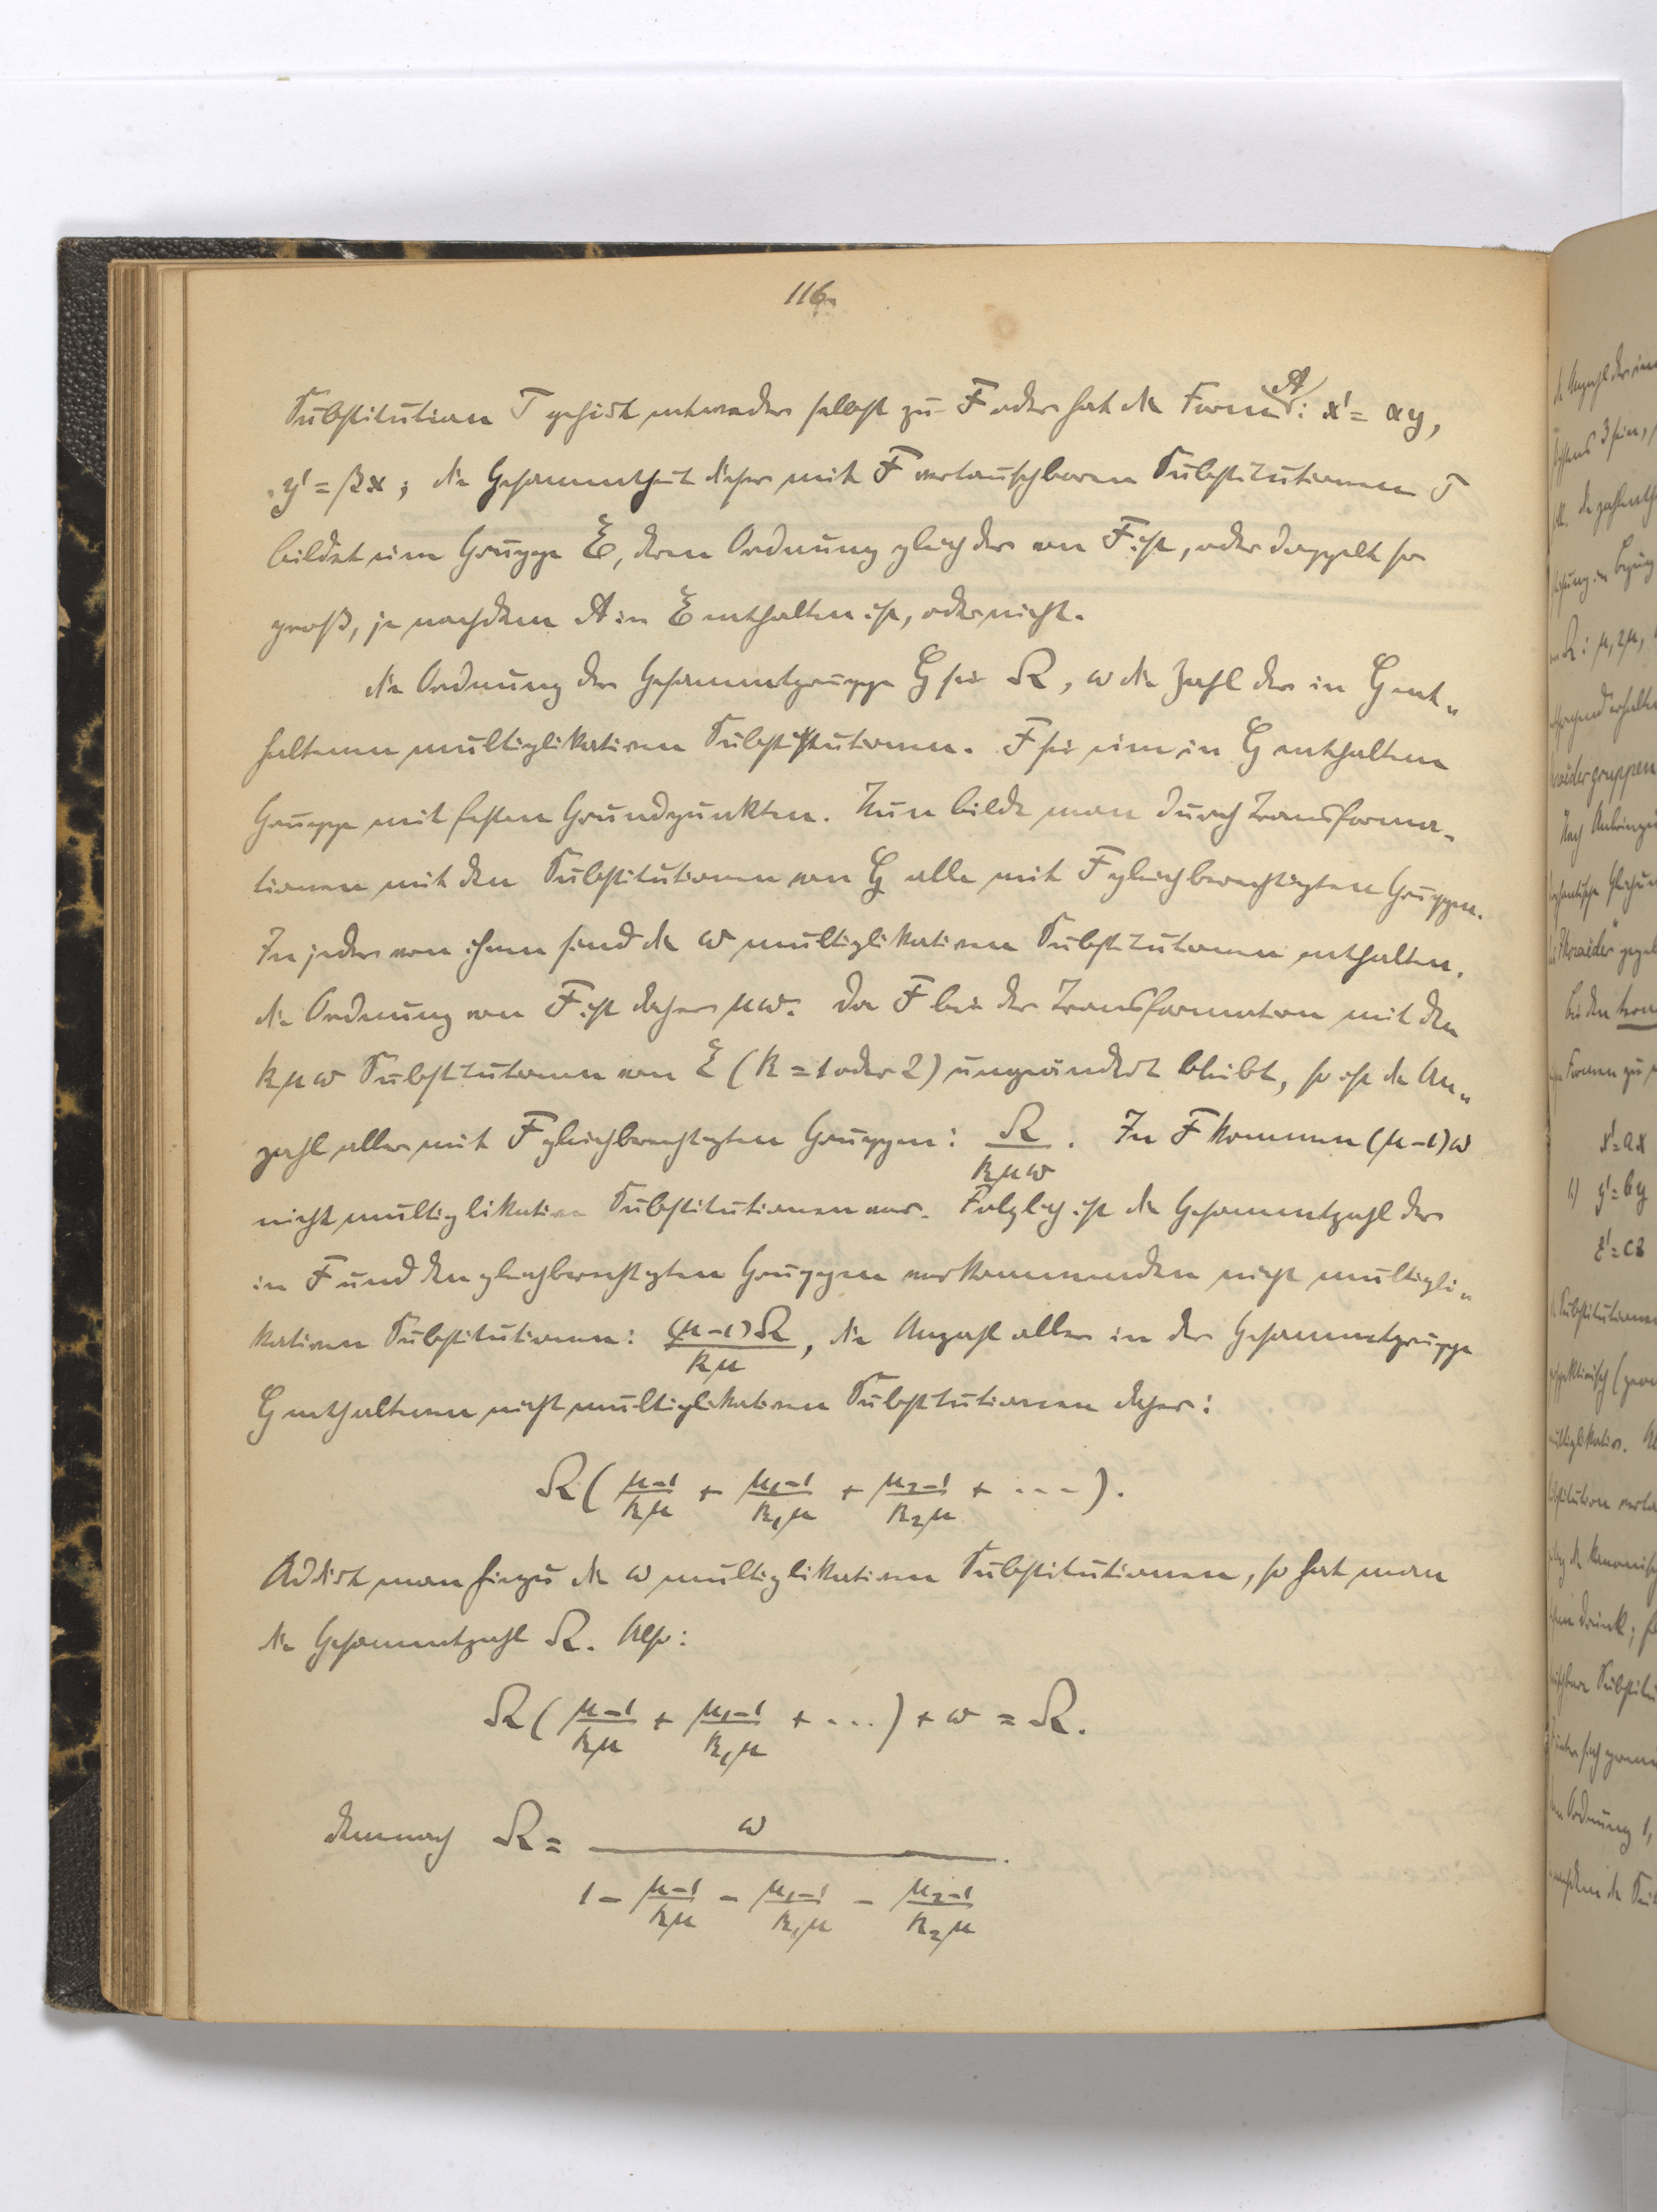 116.
Substitution T gehört entweder selbst zu F oder hat die Form A: x' = αy,
y' = βx; die Gesammtheit dieser mit F vertauschbaren Substitutionen T
bildet eine Gruppe E, deren Ordnung gleich der von F ist, oder doppelt so
groß, je nachdem A in E enthalten ist, oder nicht.
Die Ordnung der Gesammtgruppe G sei Ω, ω die Zahl der in G ent„
haltenen multiplikativen Substitutionen. F sei eine in G enthaltene
Gruppe mit festen Grundpunkten. Nun bilde man durch Transforma„
tionen mit den Substitutionen von G alle mit F gleichberechtigten Gruppen.
In jeder von ihnen sind die ω multiplikativen Substitutionen enthalten,
die Ordnung von F ist daher μω. Da F bei der Transformation mit den
kμω Substitutionen von E (k = 1 oder 2) ungeändert bleibt, so ist die An„
zahl aller mit F gleichberechtigten Gruppen: Ω/kμω. In F kommen (μ-1)ω
nicht multiplikative Substitutionen vor. Folglich ist die Gesammtzahl der
in F und den gleichberechtigten Gruppen vorkommenden nicht multipli„
kativen Substitutionen: (μ-1)Ω/kμ, die Anzahl aller in der Gesammtgruppe
G enthaltenen nicht multiplikativen Substitutionen daher:
Ω(μ-1/kμ + μ₁-1/k₁μ + μ₂-1/k₂μ + ---).
Addirt man hinzu die ω multiplikativen Substitutionen, so hat man
die Gesammtzahl Ω. Also:
Ω(μ-1/kμ + μ₁-1/k₁μ + ...) + ω = Ω.
Demnach Ω = ω / 1 - μ-1/kμ - μ₁-1/k₁μ - μ₂-1/k₂μ.
x'=ax
y'=by
z'=cz